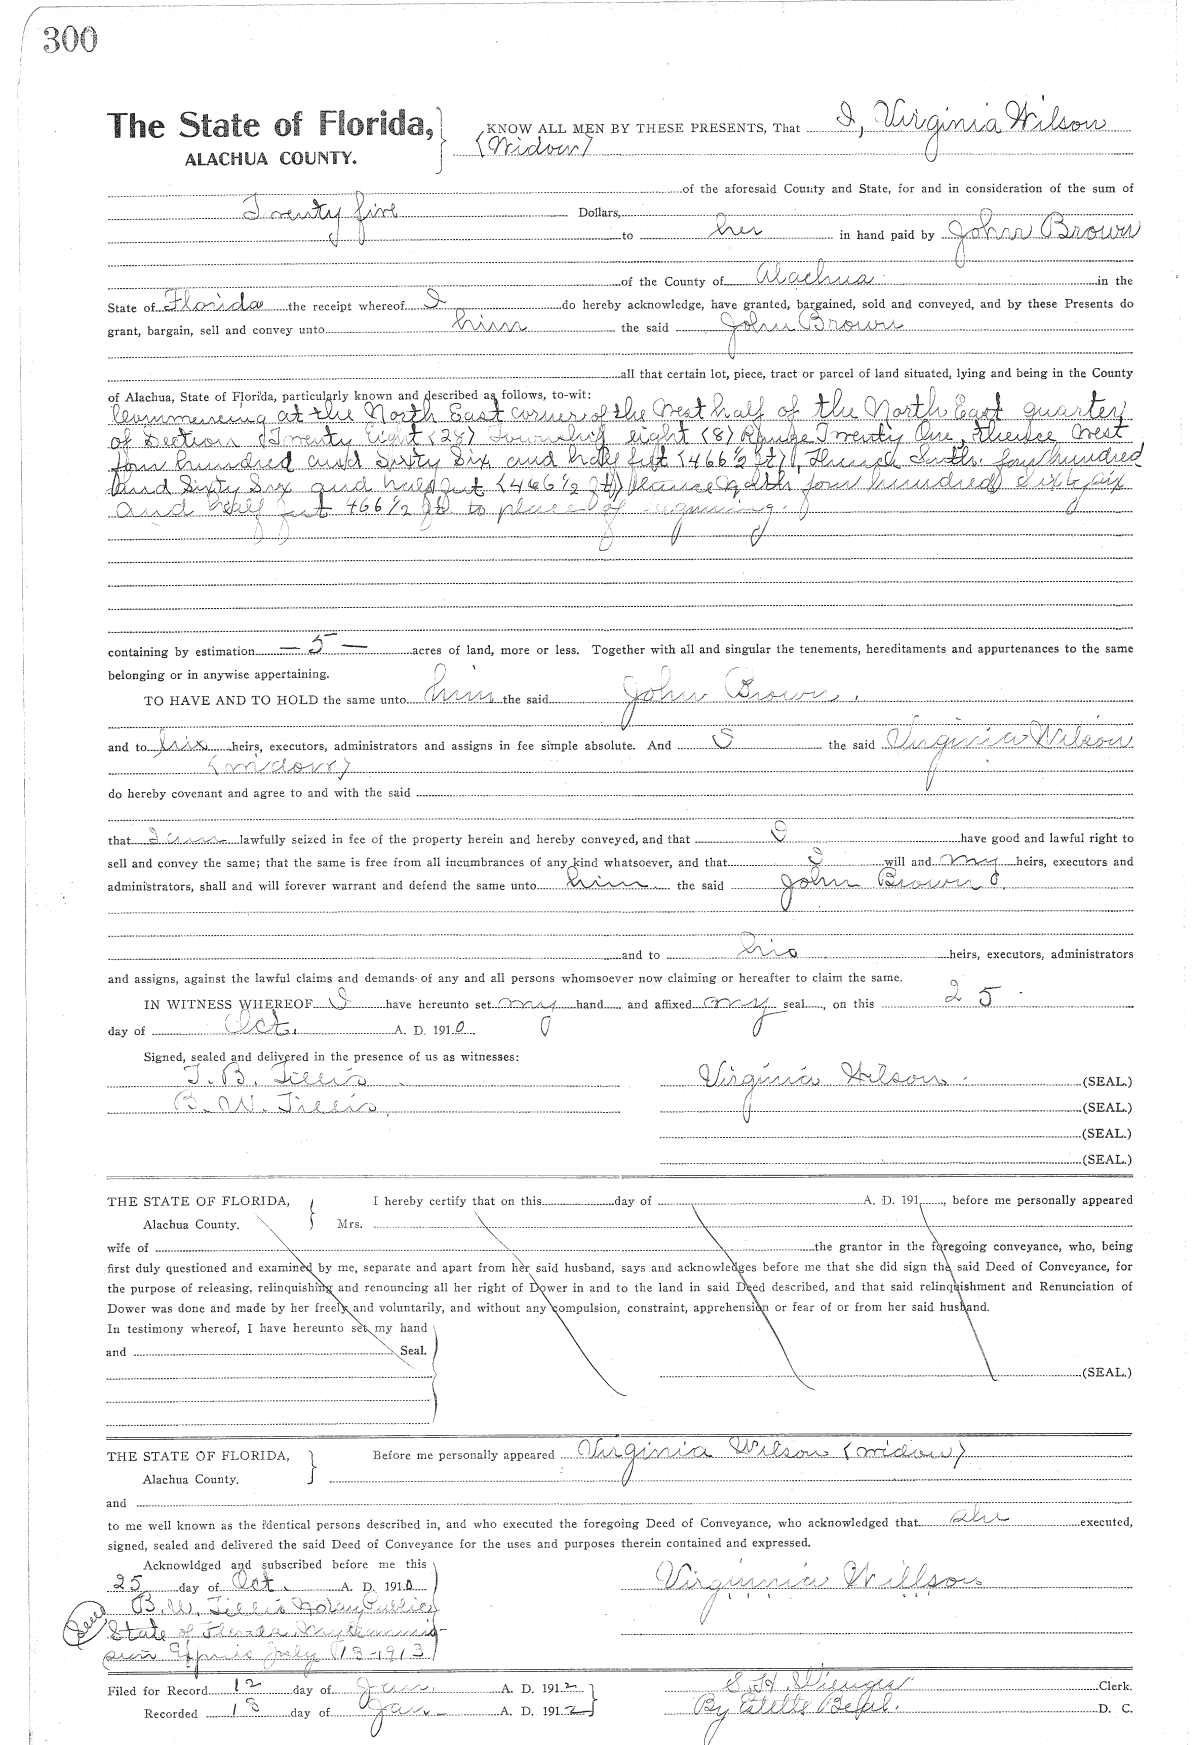 300
The State of Florida, KNOW ALL MEN BY THESE PRESENTS, That I, Virginia Wilson
ALACHUA COUNTY. (Widow)
of the aforesaid County and State, for and in consideration of the sum of
Twenty five Dollars,
to her in hand paid by John Brown
of the County of Alachua in the
State of Florida the receipt whereof I do hereby acknowledge, have granted, bargained, sold and conveyed, and by these Presents do
grant, bargain, sell and convey unto him the said John Brown
all that certain lot, piece, tract or parcel of land situated, lying and being in the County
of Alachua, State of Florida, particularly known and described as follows, to-wit:
Commencing at the North East corner of the West half of the North East quarter
of Section (Twenty Eight (28) Township eight (8) Range Twenty One, thence West
four hundred and Sixty Six and half feet (466 1/2 ft), thence South four hundred
and Sixty Six and half feet (466 1/2 ft) thence North four hundred sixty six
and half feet 466 1/2 ft to place of beginning.
containing by estimation — 5 — acres of land, more or less. Together with all and singular the tenements, hereditaments and appurtenances to the same
belonging or in anywise appertaining.
TO HAVE AND TO HOLD the same unto him the said John Brown,
and to his heirs, executors, administrators and assigns in fee simple absolute. And I the said Virginia Wilson
(widow)
do hereby covenant and agree to and with the said
that I am lawfully seized in fee of the property herein and hereby conveyed, and that I have good and lawful right to
sell and convey the same; that the same is free from all incumbrances of any kind whatsoever, and that I will and my heirs, executors and
administrators, shall and will forever warrant and defend the same unto him the said John Brown
and to his heirs, executors, administrators
and assigns, against the lawful claims and demands of any and all persons whomsoever now claiming or hereafter to claim the same.
IN WITNESS WHEREOF I have hereunto set my hand and affixed my seal, on this 25
day of Oct. A. D. 1910
Signed, sealed and delivered in the presence of us as witnesses:
T. B. Tillis Virginia Wilson (SEAL.)
B. W. Tillis, (SEAL.)
(SEAL.)
(SEAL.)
THE STATE OF FLORIDA, I hereby certify that on this day of A. D. 191 , before me personally appeared
Alachua County. Mrs.
wife of the grantor in the foregoing conveyance, who, being
first duly questioned and examined by me, separate and apart from her said husband, says and acknowledges before me that she did sign the said Deed of Conveyance, for
the purpose of releasing, relinquishing and renouncing all her right of Dower in and to the land in said Deed described, and that said relinquishment and Renunciation of
Dower was done and made by her freely and voluntarily, and without any compulsion, constraint, apprehension or fear of or from her said husband.
In testimony whereof, I have hereunto set my hand
and Seal.
(SEAL.)
THE STATE OF FLORIDA, Before me personally appeared Virginia Wilson (widow)
Alachua County.
and
to me well known as the identical persons described in, and who executed the foregoing Deed of Conveyance, who acknowledged that she executed,
signed, sealed and delivered the said Deed of Conveyance for the uses and purposes therein contained and expressed.
Acknowldged and subscribed before me this
25 day of Oct. A. D. 1910 Virginnia Willson
B. W. Tillis Notary Public
Seal State of Florida My Commis-
sion Expires July 13-1913
Filed for Record 12 day of Jan. A. D. 1912 S. H. Wienges Clerk.
Recorded 13 day of Jan. A. D. 1912 By D. C.